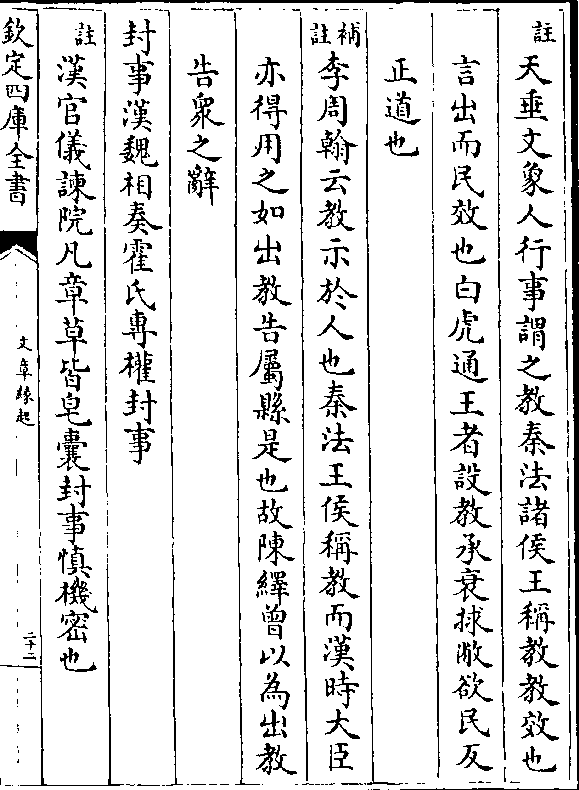 註天垂文象人行事謂之教秦法諸侯王稱教教效也
言出而民效也白虎通王者設教承衰捄敝欲民反
正道也
補註李周翰云教示於人也秦法王侯稱教而漢時大臣
亦得用之如出教告屬縣是也故陳繹曾以為出教
告衆之辭
封事漢魏相奏霍氏專權封事
註漢官儀諫院凡章草皆皂囊封事慎機密也
欽定四庫全書
文章緣起
二十二